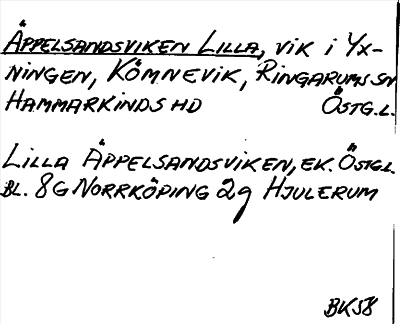 ÄPPELSANDSVIKEN LILLA, VIK I YX-
NINGEN, KÖMNEVIK, RINGARUMS SN
HAMMARKINDS HD ÖSTG.L.
LILLA ÄPPELSANDSVIKEN, EK. ÖSTGL.
BL. 8G NORRKÖPING 2g HJULERUM
BK58